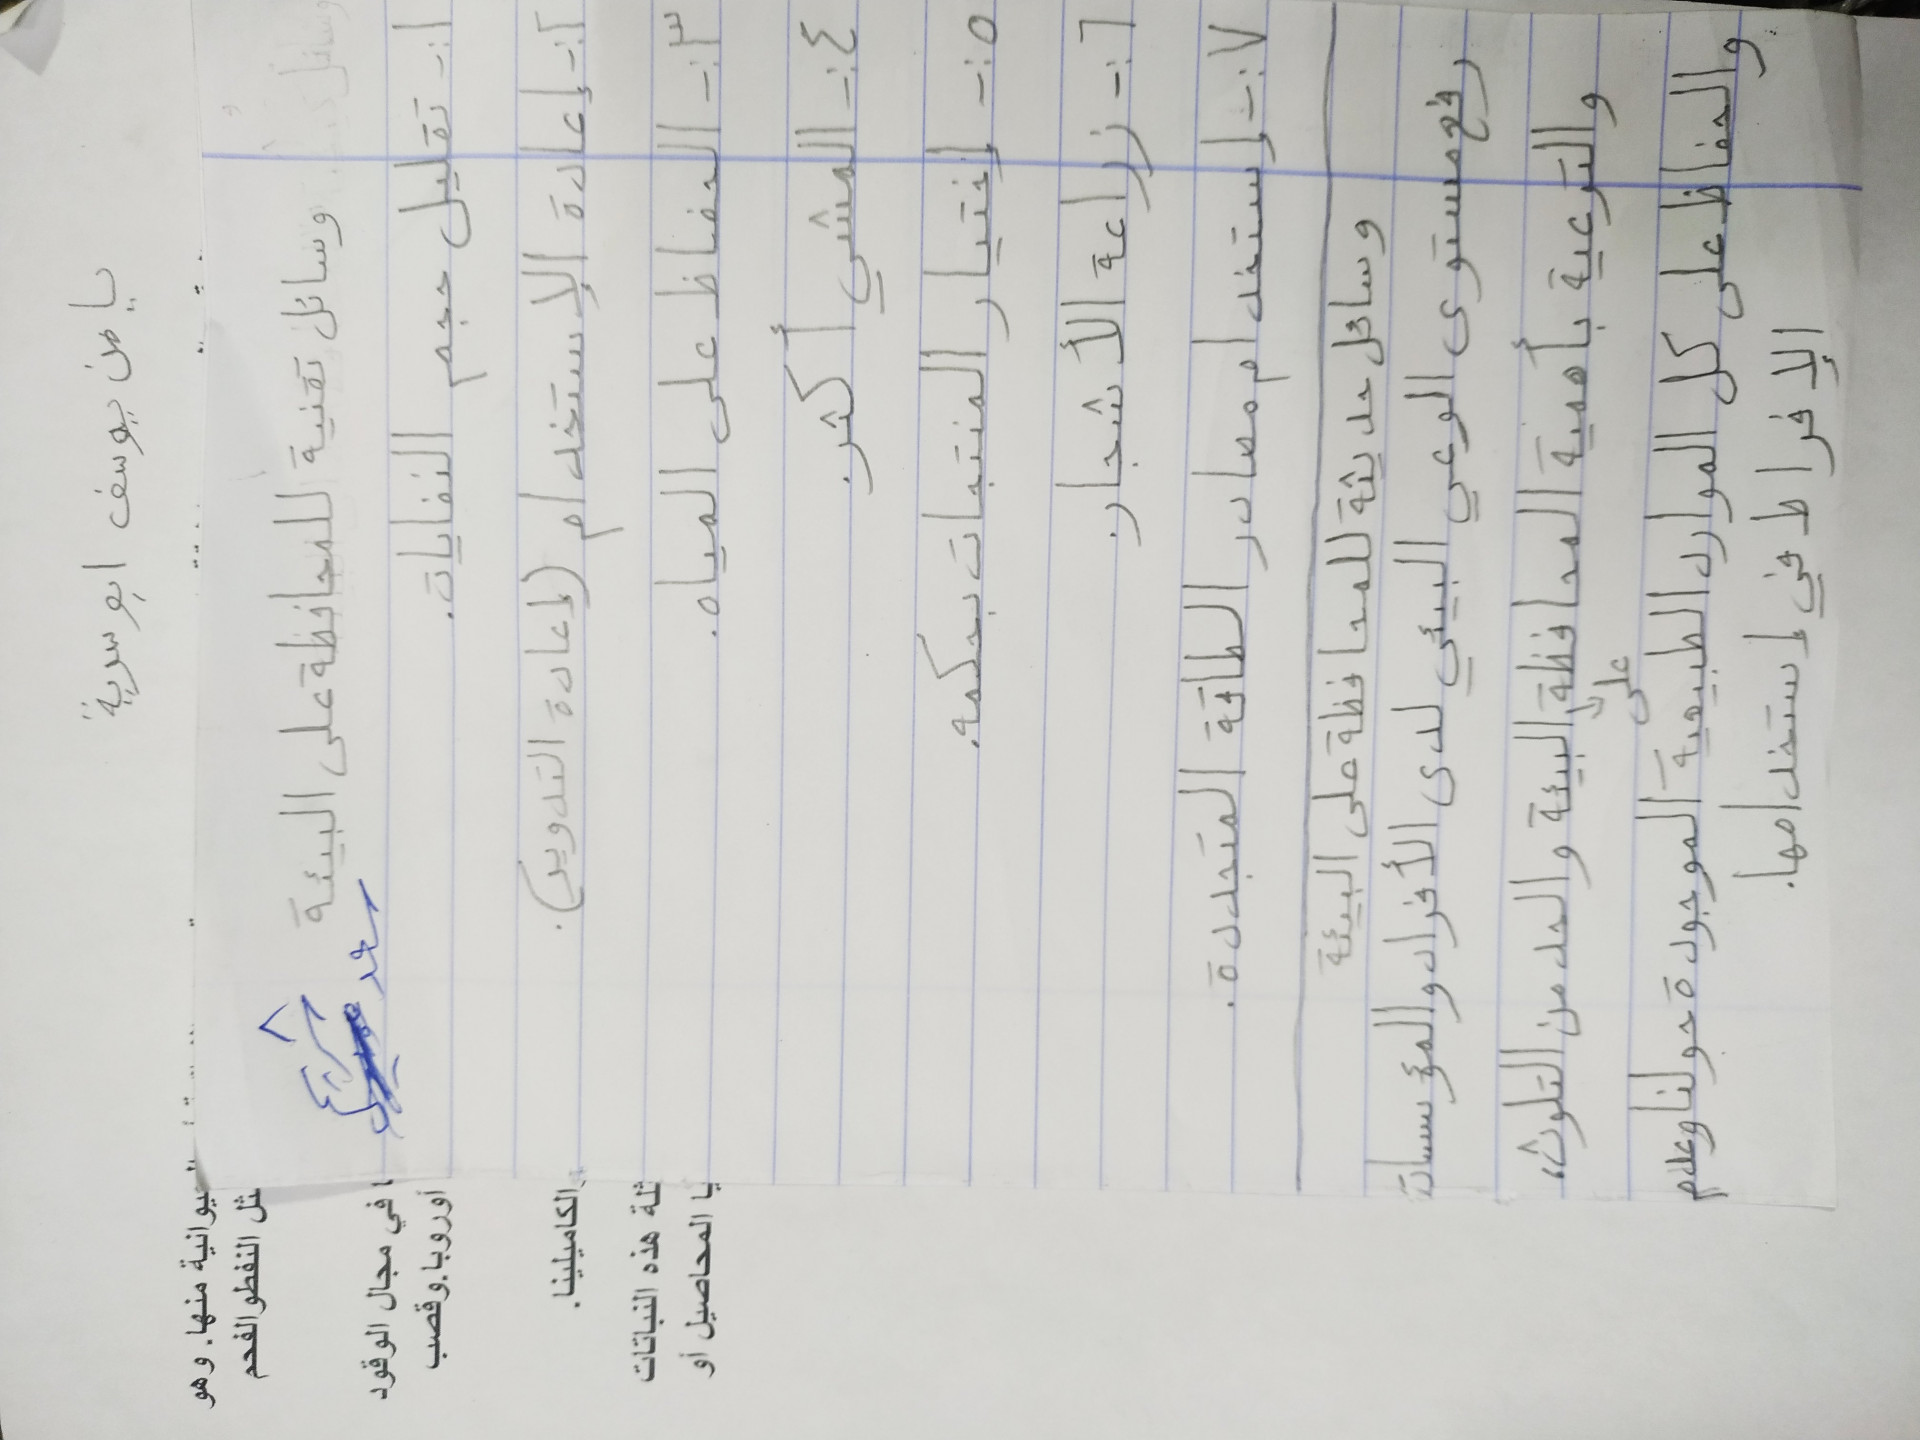 يامن يوسف ابو سرية
وسائل تقنية للمحافظة على البيئة
١:- تقليل حجم النفايات.
٢:- إعادة الإستخدام (إعادة التدوير).
٣:- الحفاظ على المياه.
٤:- المشي أكثر.
٥:- إختيار المنتجات بحكمه.
٦:- زراعة الأشجار.
٧:- إستخدام مصادر الطاقة المتجددة.
وسائل حديثة للمحافظة على البيئة
رفع مستوى الوعي البيئي لدى الأفراد والمؤسسات
والتوعية بأهمية المحافظة على البيئة والحد من التلوث،
والحفاظ على كل الموارد الطبيعية الموجودة حولنا وعدم
الإفراط في إستخدامها.
يوانية منها. وهو
ثل النفط والفحم
ا في مجال الوقود
أوروبا. وقصب
الكاميلينا.
ثلة هذه النباتات
يا المحاصيل أو